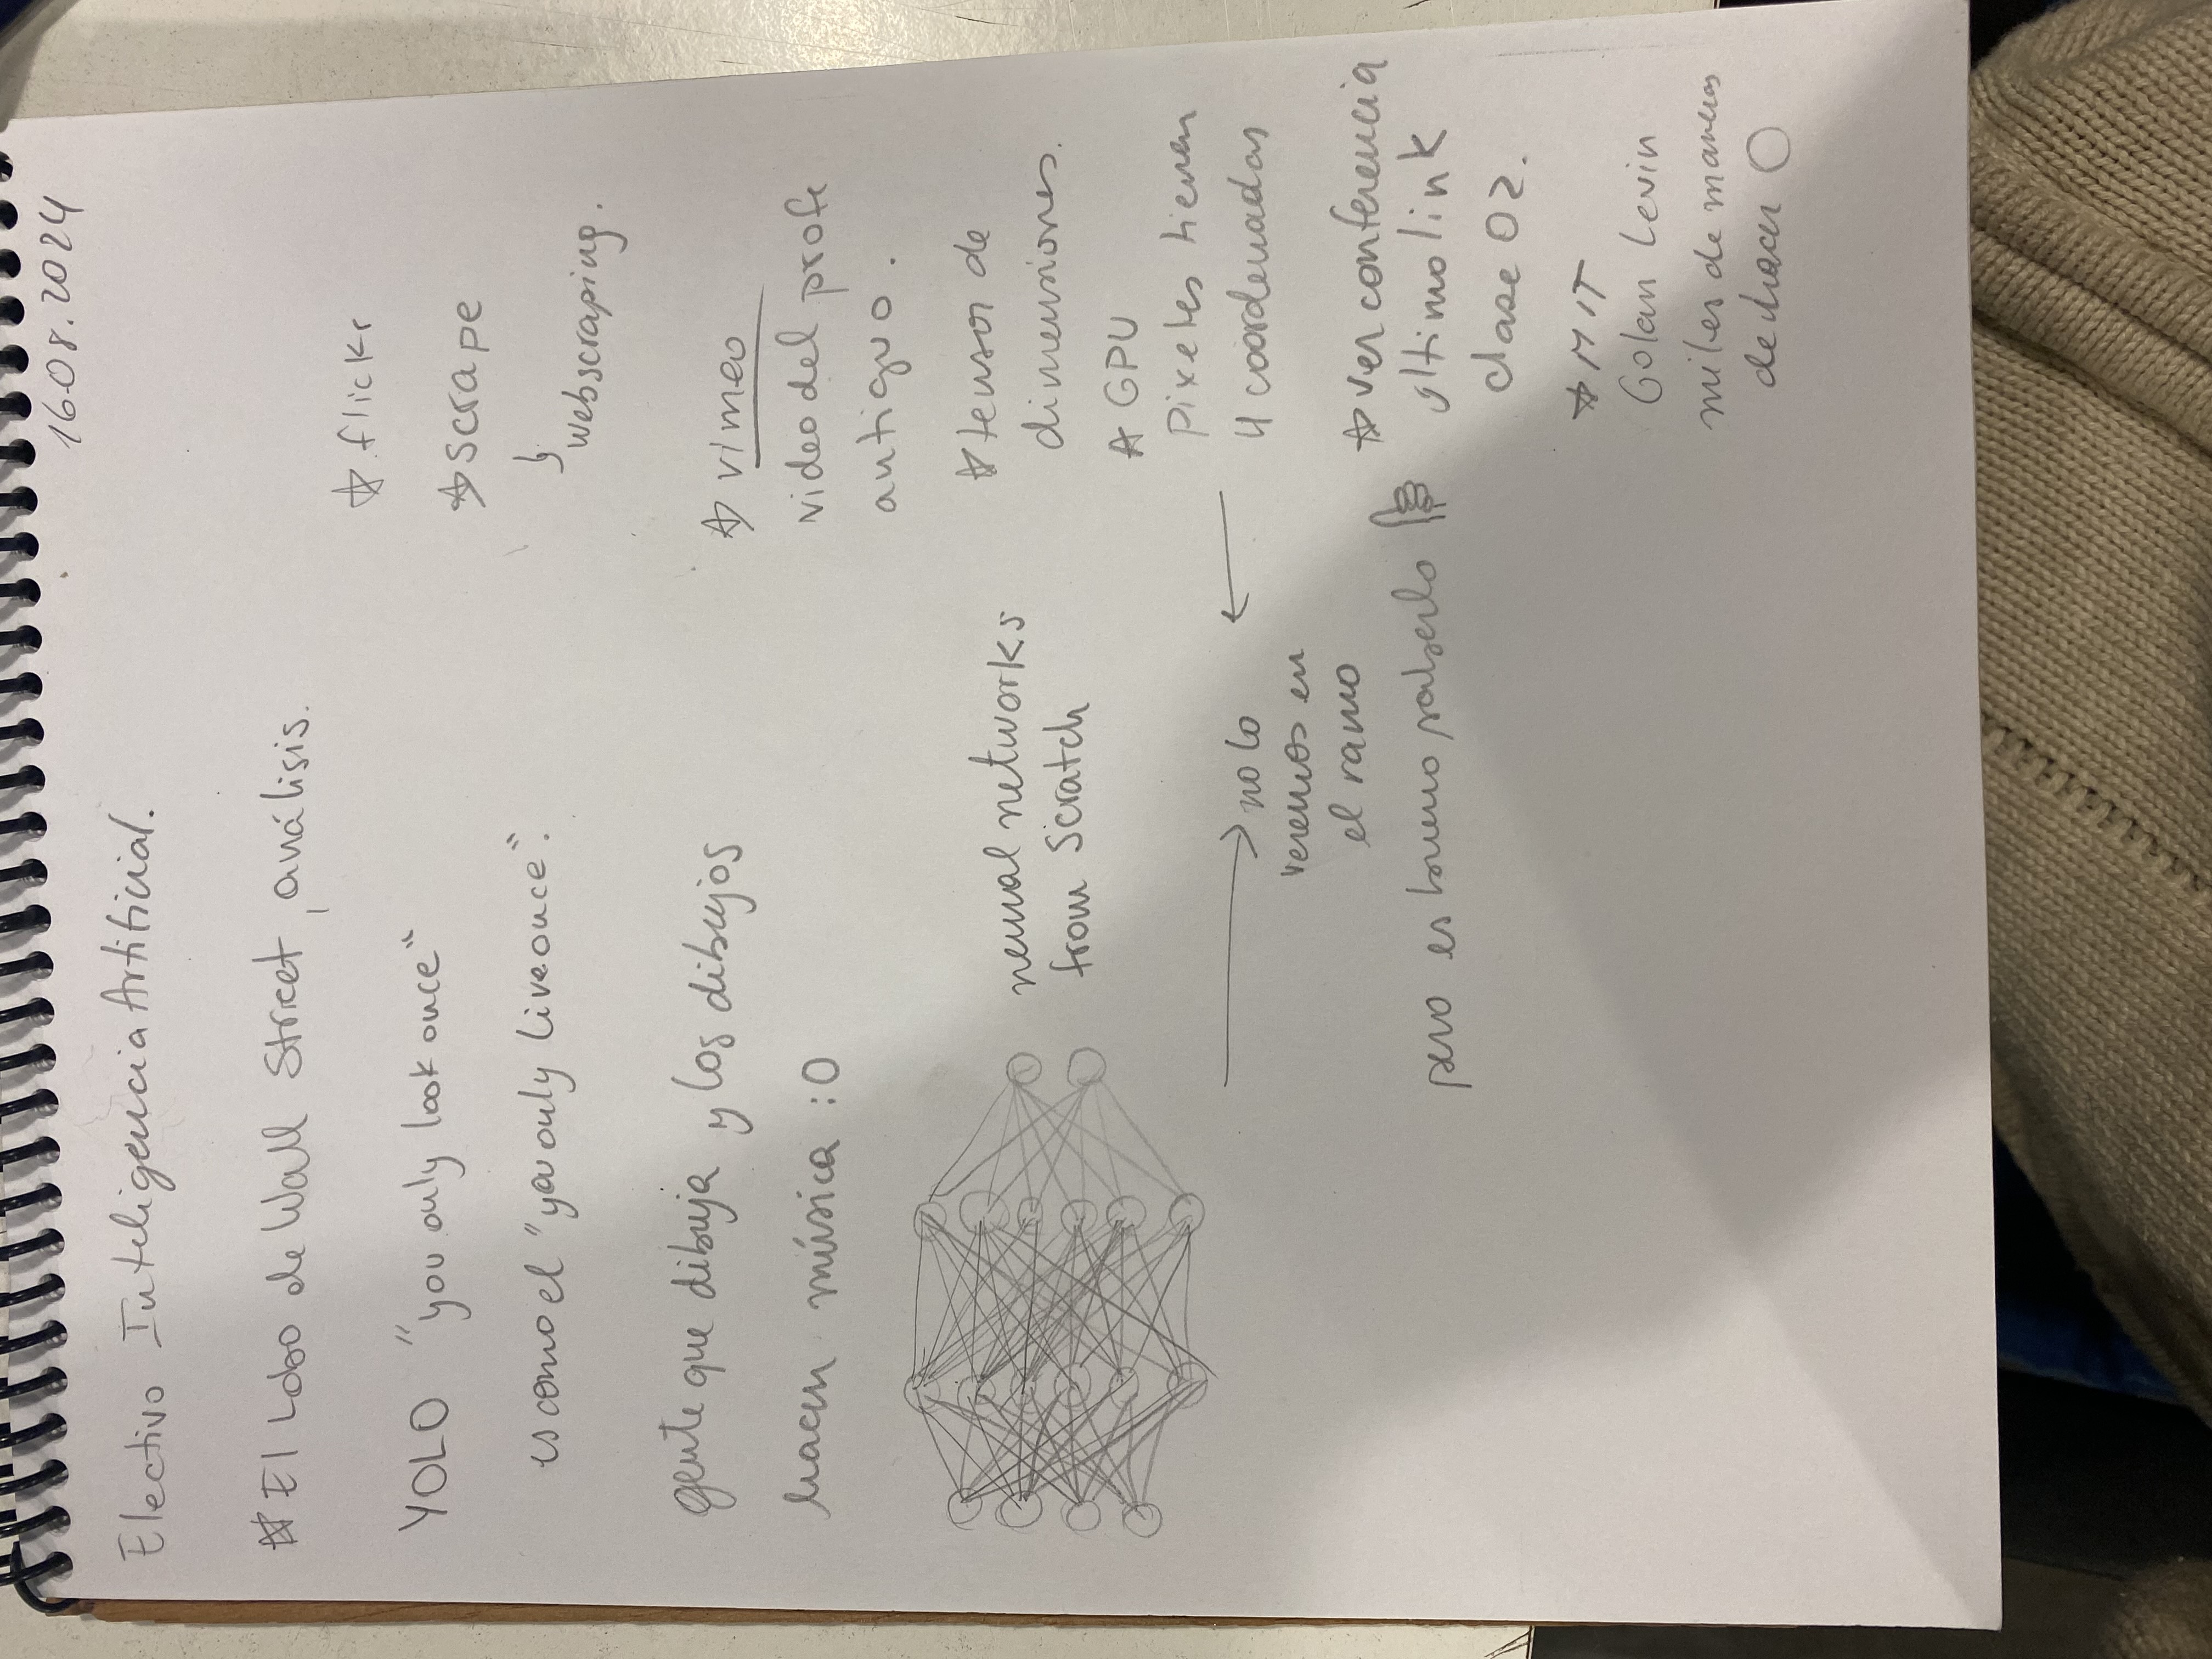 16.08.2024
Electivo Inteligencia Artificial.
El Lobo de Wall Street, análisis.
YOLO "you only look once"
es como el "you only live once".
gente que dibuja y los dibujos
hacen música :O
neural networks
from Scratch
no lo
veremos en
el ramo
pero es bueno saberlo
flickr
scrape
webscraping.
vimeo
video del profe
antiguo.
tensor de
dimensiones.
GPU
Pixeles tienen
4 coordenadas
ver conferencia
ultimo link
clase 02.
MIT
Golan Levin
miles de maneras
de hacer